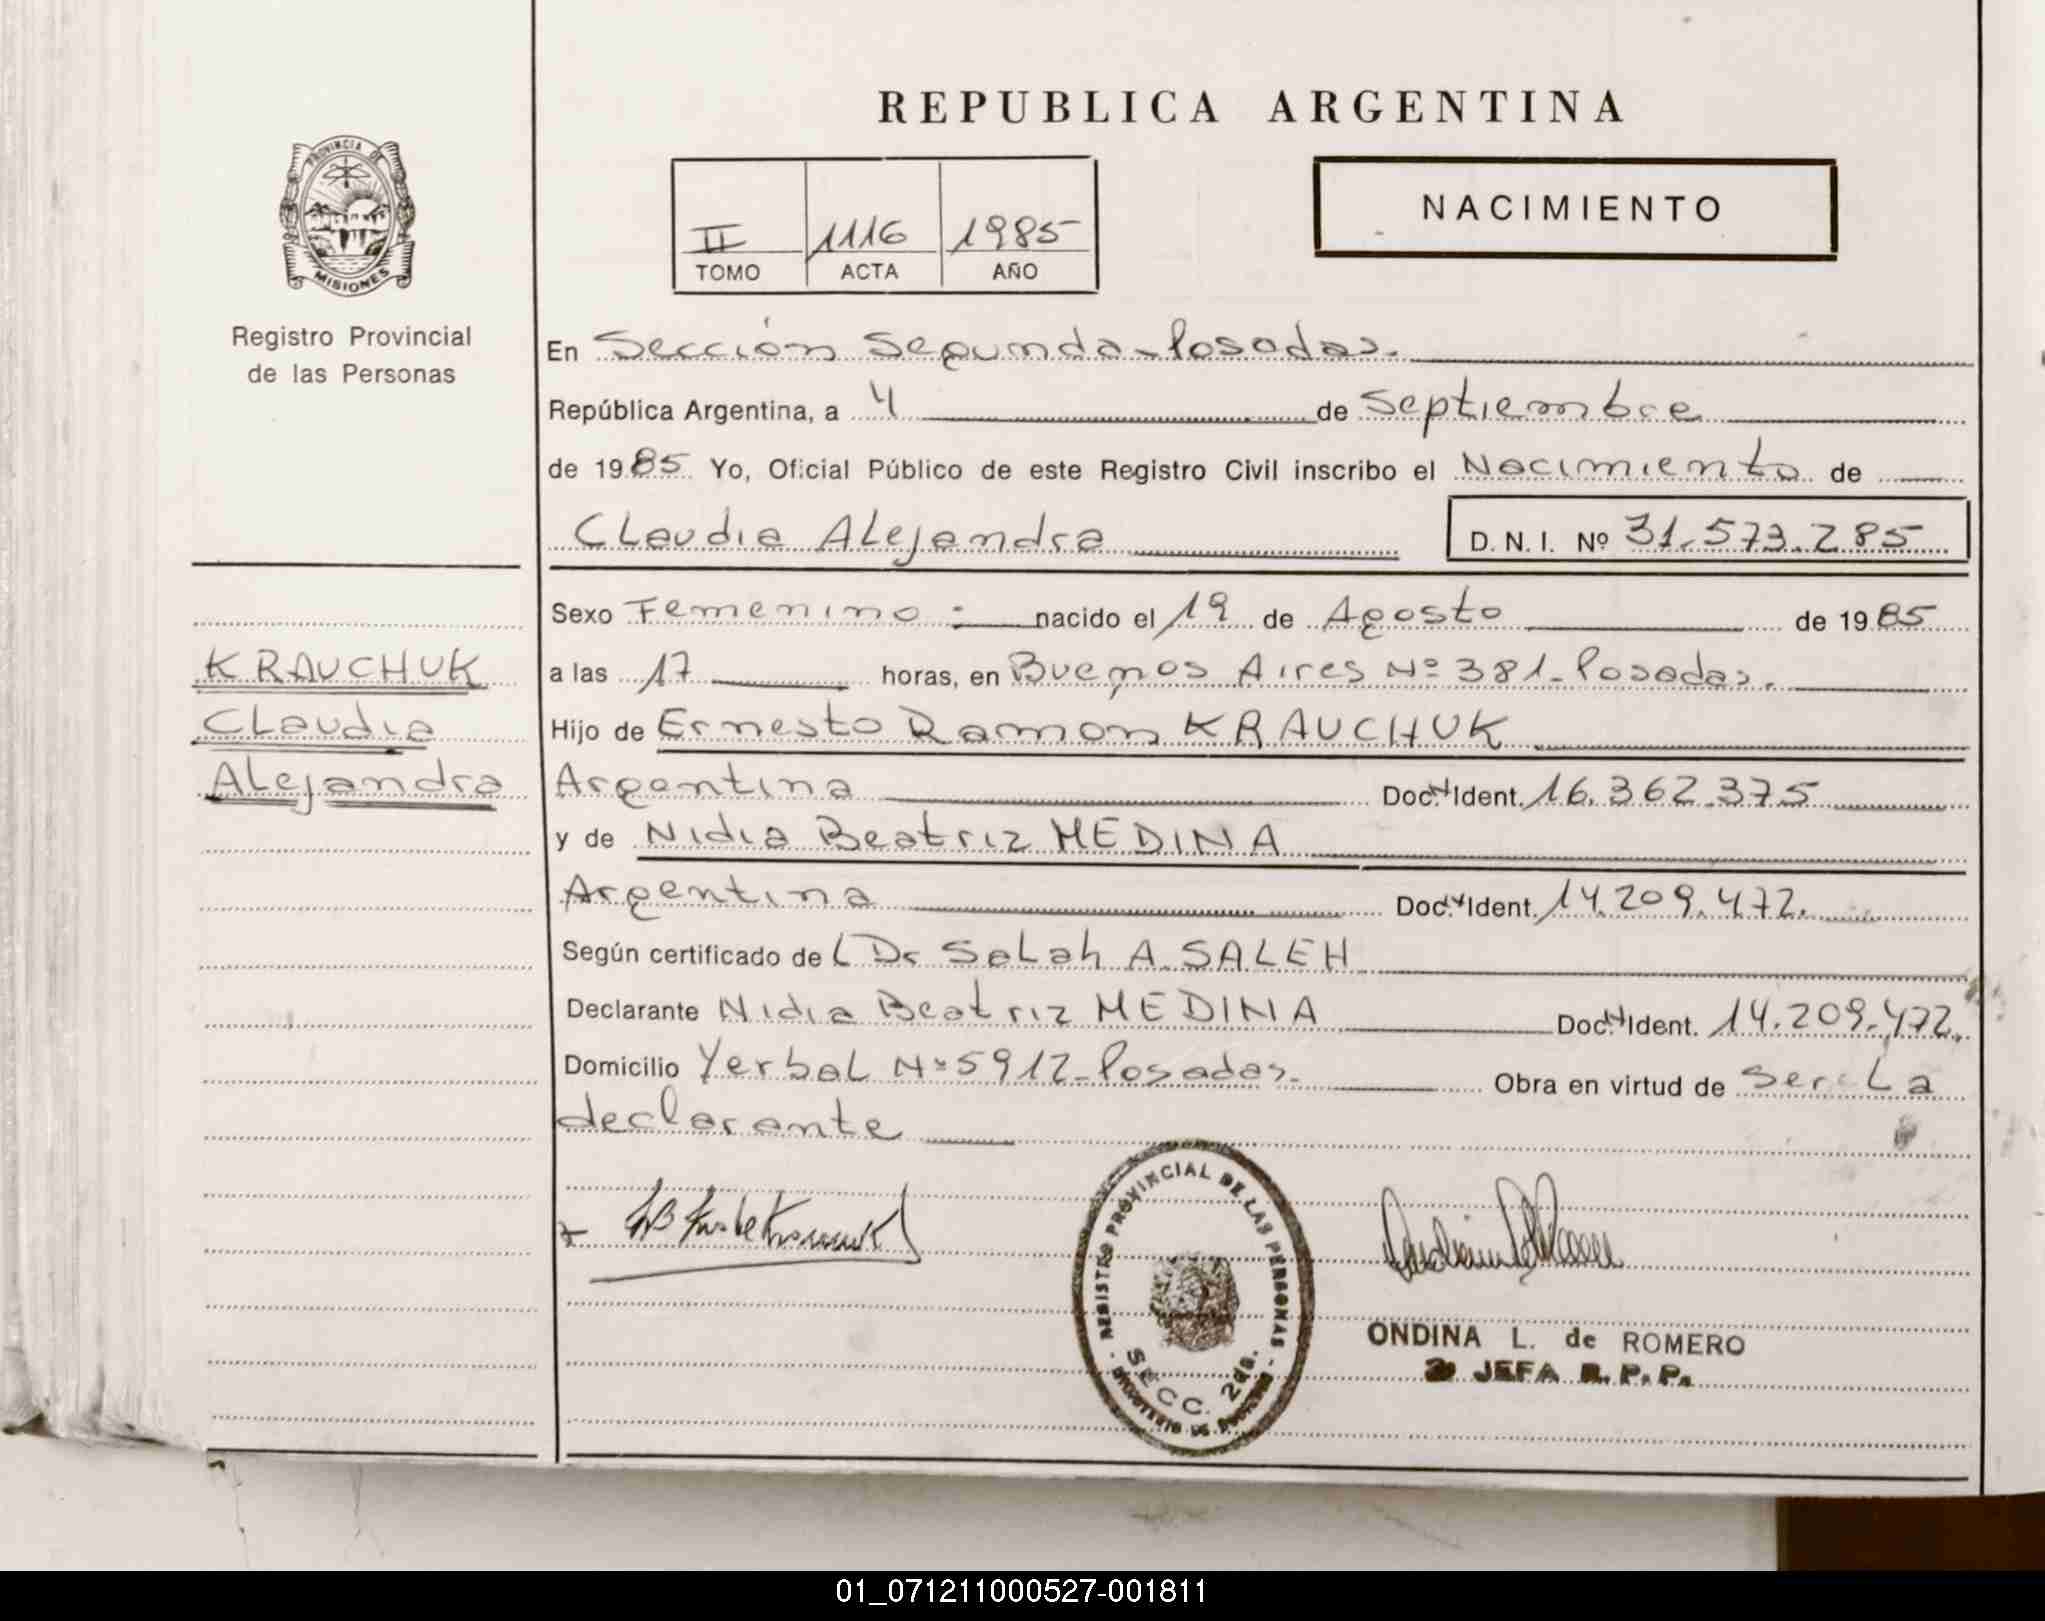 REPUBLICA ARGENTINA
PROVINCIA DE
MISIONES
Registro Provincial
de las Personas
II 1116 1985
TOMO ACTA AÑO
NACIMIENTO
En Sección Segunda-Posadas.
República Argentina, a 4 de Septiembre
de 1985 Yo, Oficial Público de este Registro Civil inscribo el Nacimiento de
Claudia Alejandra D.N.I. Nº 31.573.285
Sexo Femenino nacido el 19 de Agosto de 1985
a las 17 horas, en Buenos Aires Nº 381-Posadas.
Hijo de Ernesto Ramon KRAUCHUK
Argentina Doc. Ident. 16.362.375
y de Nidia Beatriz MEDINA
Argentina Doc. Ident. 14.209.472.
Según certificado de Dr Salah A. SALEH
Declarante Nidia Beatriz MEDINA Doc. Ident. 14.209.472.
Domicilio Yerbal Nº 5912-Posadas. Obra en virtud de Ser La
declarante
KRAUCHUK
Claudia
Alejandra
REGISTRO PROVINCIAL DE LAS PERSONAS
SECC. 2da.
ONDINA L. de ROMERO
JEFA R.P.P.
01_071211000527-001811